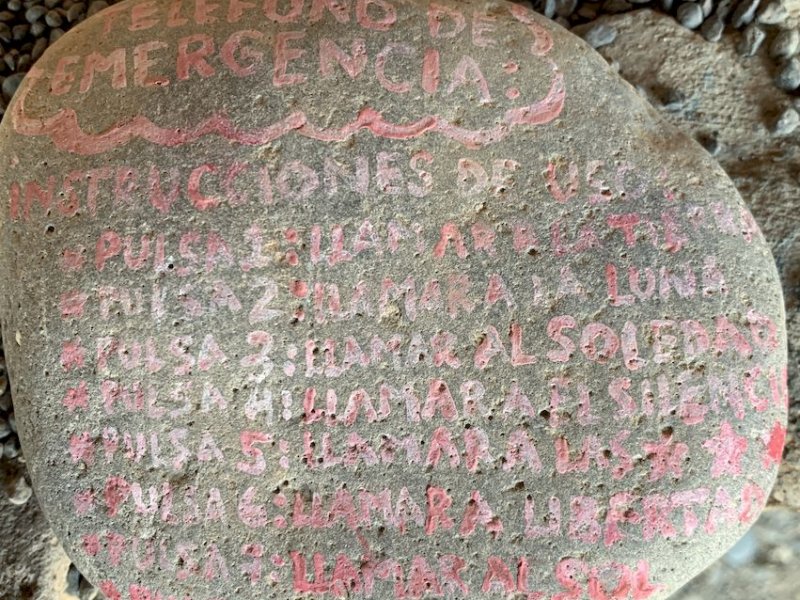 TELEFONO DE
EMERGENCIA:
INSTRUCCIONES DE USO:
*PULSA 1: LLAMAR A LA TIERRA
*PULSA 2: LLAMAR A LA LUNA
*PULSA 3: LLAMAR AL SOLEDAD
*PULSA 4: LLAMAR A EL SILENCIO
*PULSA 5: LLAMAR A LAS ★ ★ ★
*PULSA 6: LLAMAR A LIBERTAD
*PULSA 7: LLAMAR AL SOL